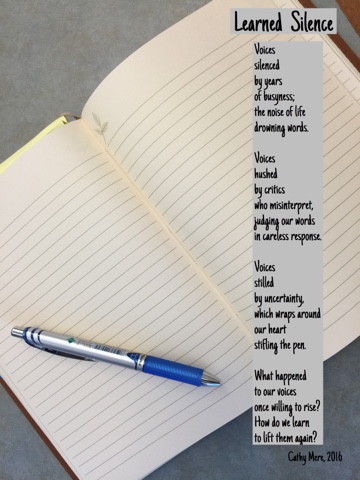 Learned Silence
Voices
silenced
by years
of busyness;
the noise of life
drowning words.
Voices
hushed
by critics
who misinterpret,
judging our words
in careless response.
Voices
stilled
by uncertainty,
which wraps around
our heart
stifling the pen.
What happened
to our voices
once willing to rise?
How do we learn
to lift them again?
Cathy Mere, 2016